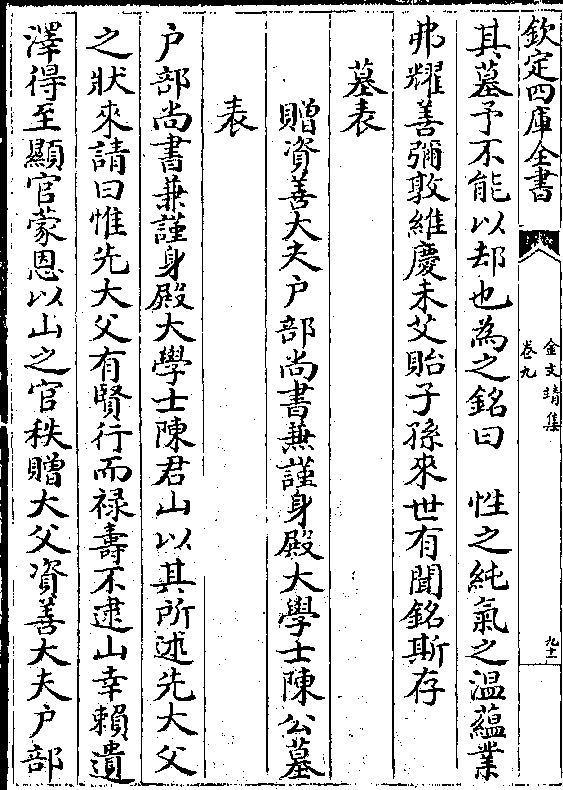 欽定四庫全書
金文靖集
卷九
九十一
其墓予不能以却也為之銘曰　性之純氣之温蘊業
弗耀善彌敦維慶未艾貽子孫來世有聞銘斯存
墓表
贈資善大夫户部尚書兼謹身殿大學士陳公墓
表
户部尚書兼謹身殿大學士陳君山以其所述先大父
之狀來請曰惟先大父有賢行而禄壽不逮山幸賴遺
澤得至顯官蒙恩以山之官秩贈大父資善大夫户部